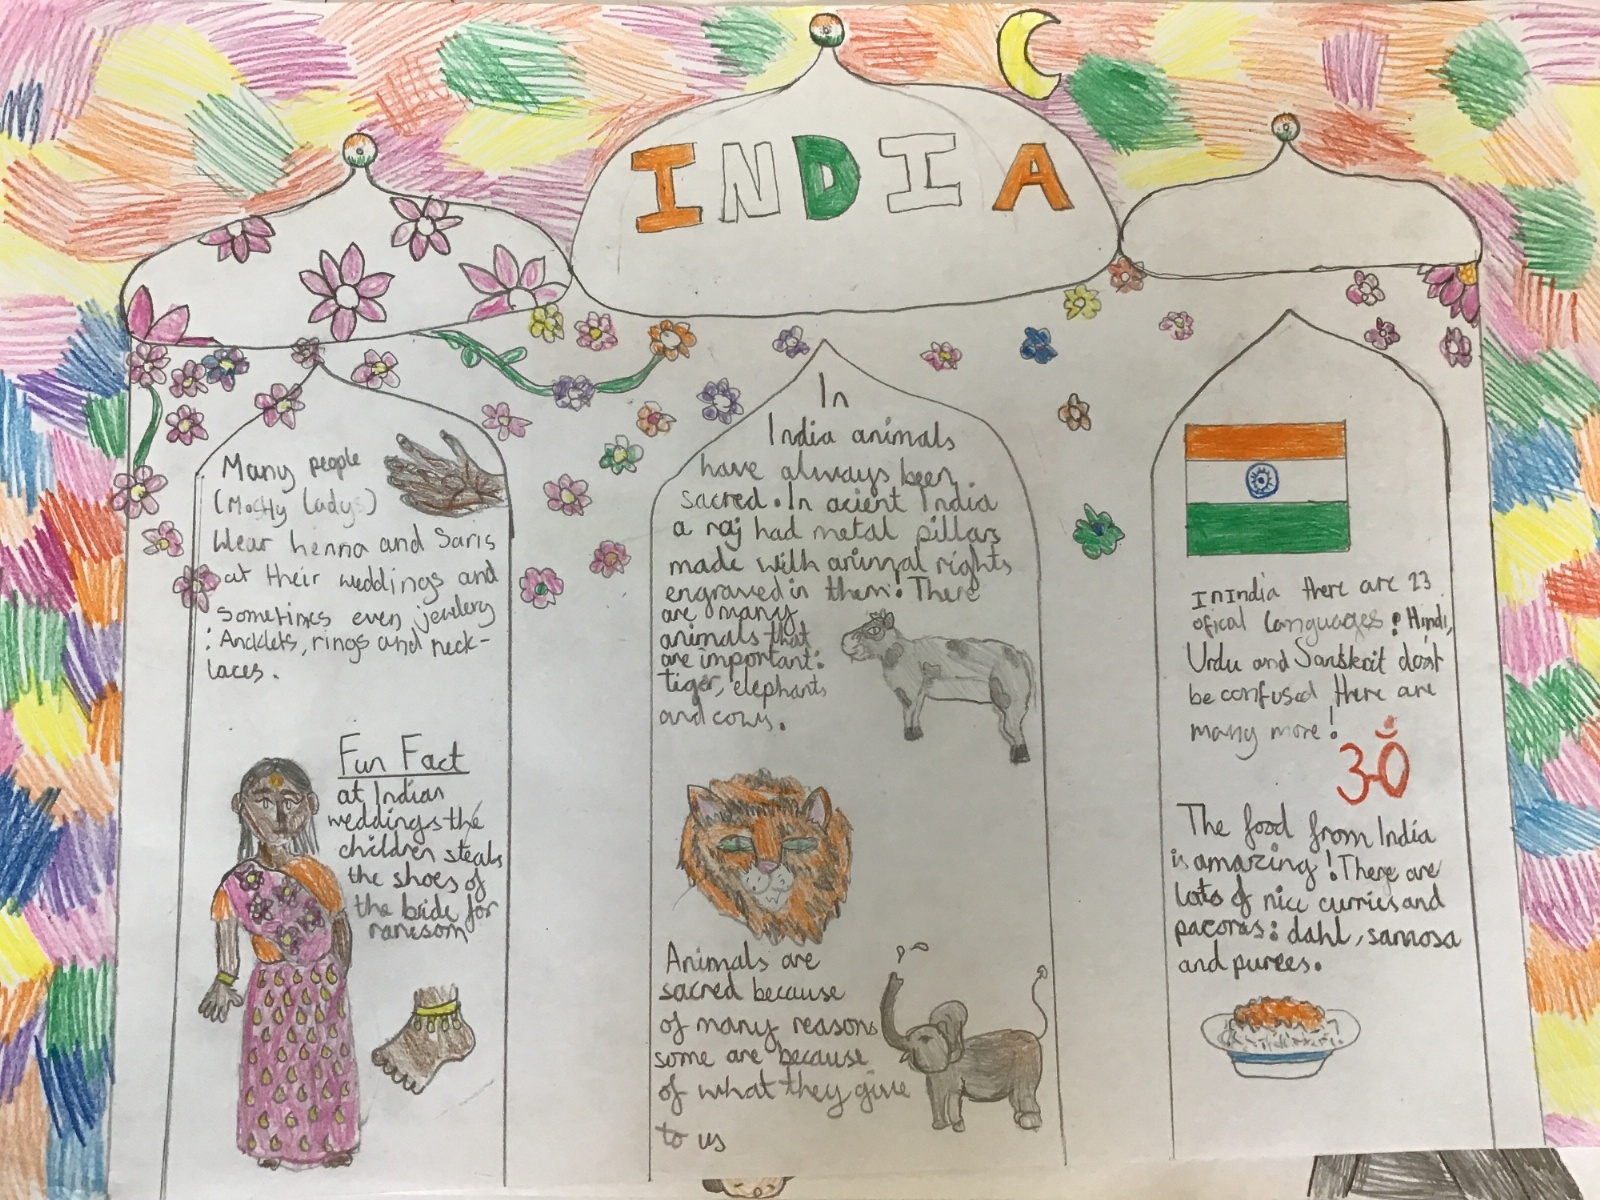 INDIA
Many people
(Mostly ladys)
Wear henna and Saris
at their weddings and
sometimes even jewlery
: Ancklets, rings and neck-
laces.
Fun Fact
at Indian
weddings the
children steals
the shoes of
the bride for
ransom
In
India animals
have always been
sacred. In acient India
a raj had metal pillars
made with animal rights
engraved in them. There
are many
animals that
are important:
tiger, elephants
and cows.
Animals are
sacred because
of many reasons
some are because
of what they give
to us
In India there are 23
ofical languages! Hindi,
Urdu and Sanskrit don't
be confused there are
many more!
ॐ
The food from India
is amazing! There are
lots of nice curries and
pacoras: dahl, samosa
and purees.